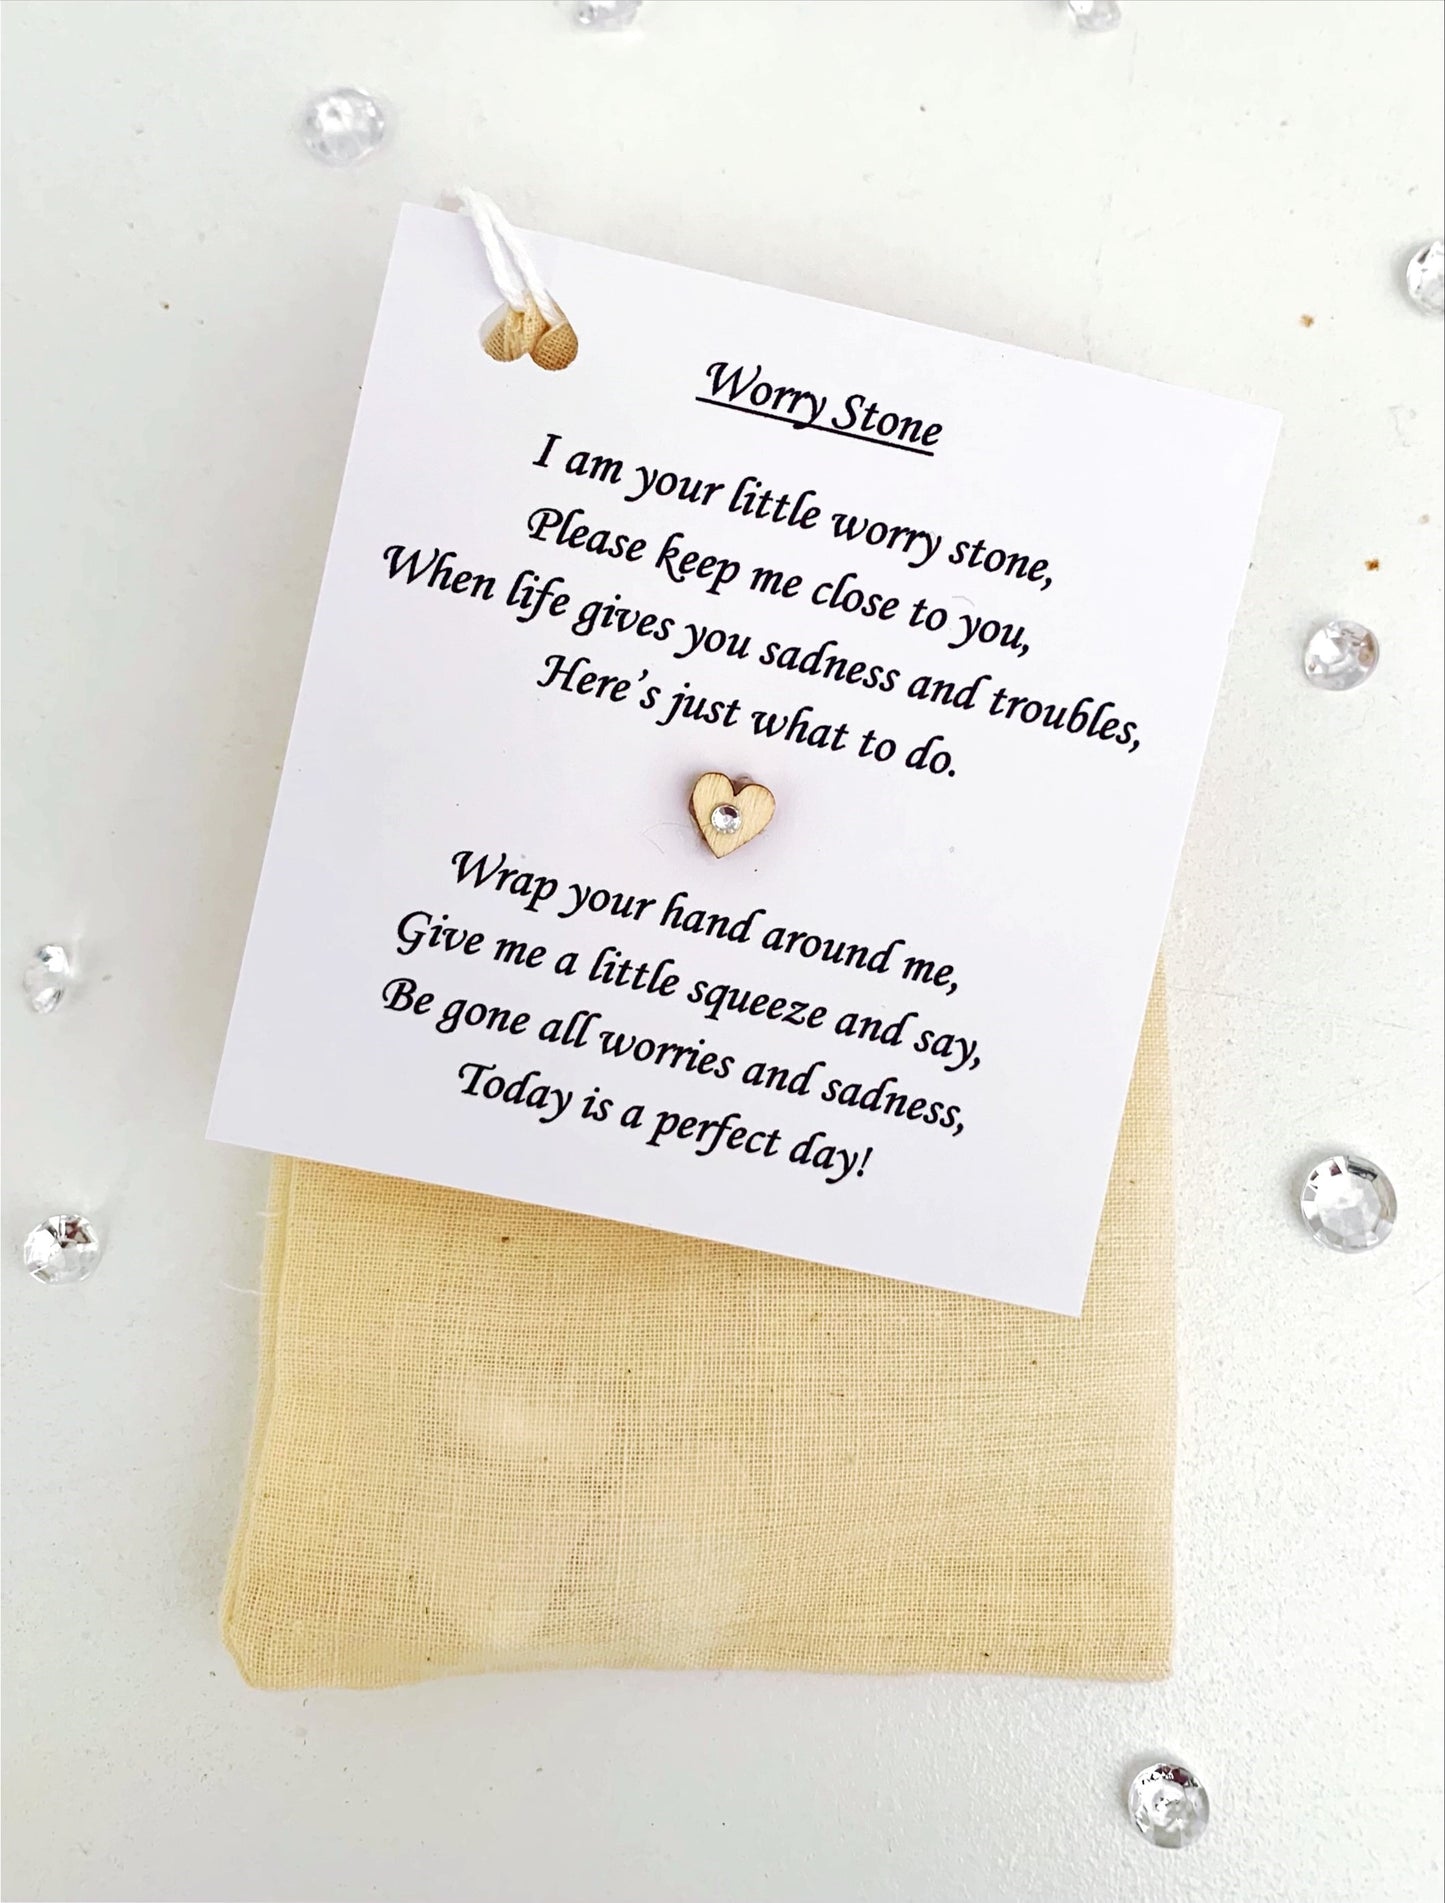 Worry Stone
I am your little worry stone,
Please keep me close to you,
When life gives you sadness and troubles,
Here's just what to do.
Wrap your hand around me,
Give me a little squeeze and say,
Be gone all worries and sadness,
Today is a perfect day!